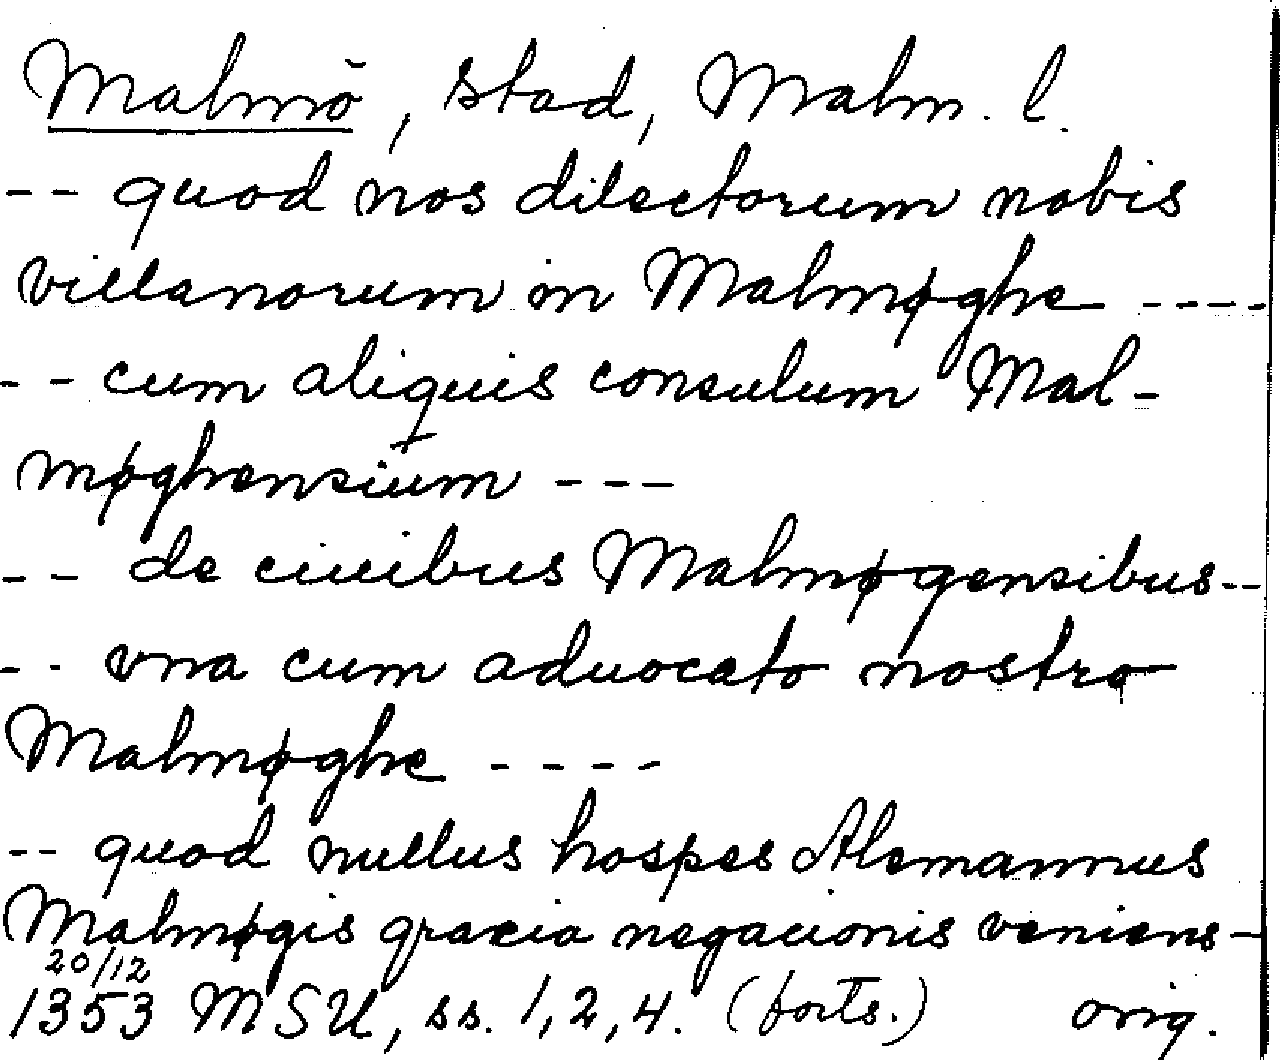 Malmö, stad, Malm. l.
-- quod nos dilectorum nobis
villanorum in Malmøghe ----
-- cum aliquis consulum Mal-
møghensium ---
-- de ciuibus Malmøgensibus--
-- vna cum aduocato nostro
Malmøghe ----
-- quod nullus hospes Alemannus
Malmøgis gracia negacionis veniens--
20/12
1353 MSU, ss. 1, 2, 4. (forts.) orig.